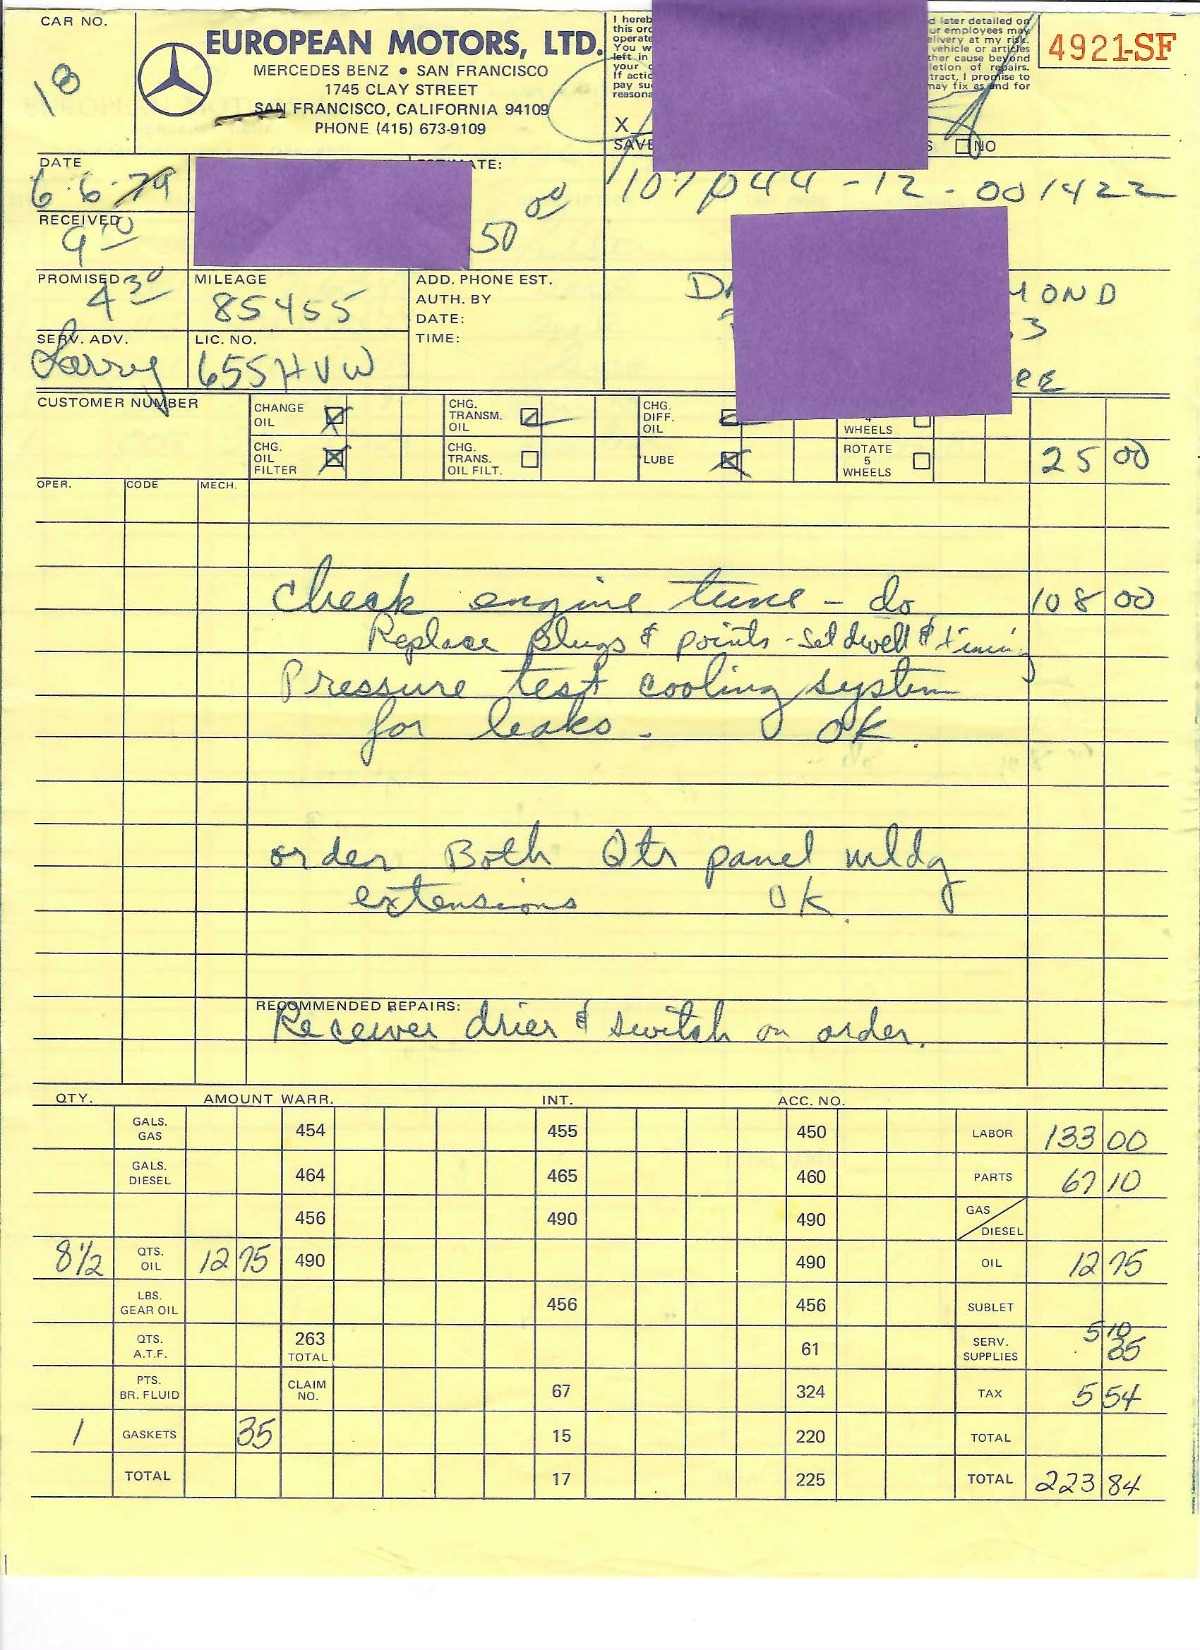 CAR NO.
18
EUROPEAN MOTORS, LTD.
MERCEDES BENZ • SAN FRANCISCO
1745 CLAY STREET
SAN FRANCISCO, CALIFORNIA 94109
PHONE (415) 673-9109
I hereb
this orc
operate
You w
left in
your
If actic
pay suc
reasona
d later detailed on
ur employees may
elivery at my risk.
vehicle or articles
ther cause beyond
letion of repairs.
tract, I promise to
may fix as and for
X
SAVE
S NO
4921-SF
DATE
6-6-79
ESTIMATE:
50 00
107044-12-001422
RECEIVED
9 10
PROMISED
4 30
MILEAGE
85455
ADD. PHONE EST.
AUTH. BY
DATE:
TIME:
DA MOND
3
EE
SERV. ADV.
Larry
LIC. NO.
655HVW
CUSTOMER NUMBER
CHANGE OIL
CHG. TRANSM. OIL
CHG. DIFF. OIL
4 WHEELS
CHG. OIL FILTER
CHG. TRANS. OIL FILT.
LUBE
ROTATE 5 WHEELS
25 00
OPER. CODE MECH.
Check engine tune - do 108 00
Replace plugs & points - set dwell & timing
Pressure test cooling system
for leaks. OK.
order Both Qtr panel mldg
extensions OK.
RECOMMENDED REPAIRS:
Receiver drier & switch on order.
QTY. AMOUNT WARR. INT. ACC. NO.
GALS. GAS 454 455 450 LABOR 133 00
GALS. DIESEL 464 465 460 PARTS 67 10
456 490 490 GAS / DIESEL
8 1/2 QTS. OIL 12 75 490 490 OIL 12 75
LBS. GEAR OIL 456 456 SUBLET
QTS. A.T.F. 263 TOTAL 61 SERV. SUPPLIES 5 10 35
PTS. BR. FLUID CLAIM NO. 67 324 TAX 5 54
1 GASKETS 35 15 220 TOTAL
TOTAL 17 225 TOTAL 223 84